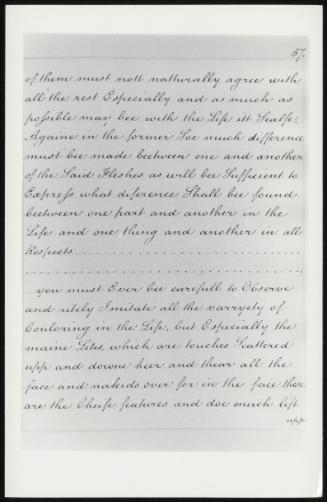 57.
of them must nott natturally agree with
all the rest Especially and as much as
possible may bee with the Life itt Sealfe.
Againe in the former Soe much difference
must bee made beetween one and another
of the Said Fleshes as will bee Sufficient to
Express what diference Shall bee found
beetween one part and another in the
Life and one thing and another in all
Respects
you must Ever bee carefull to Observe
and nicely Imitate all the varryety of
Couloring in the Life, but Especially the
maine Lites, which are touches Scattered
upp and downe heer and thear all the
face and nakeds over for in the face ther
are the Cheife features and doe much lift
upp